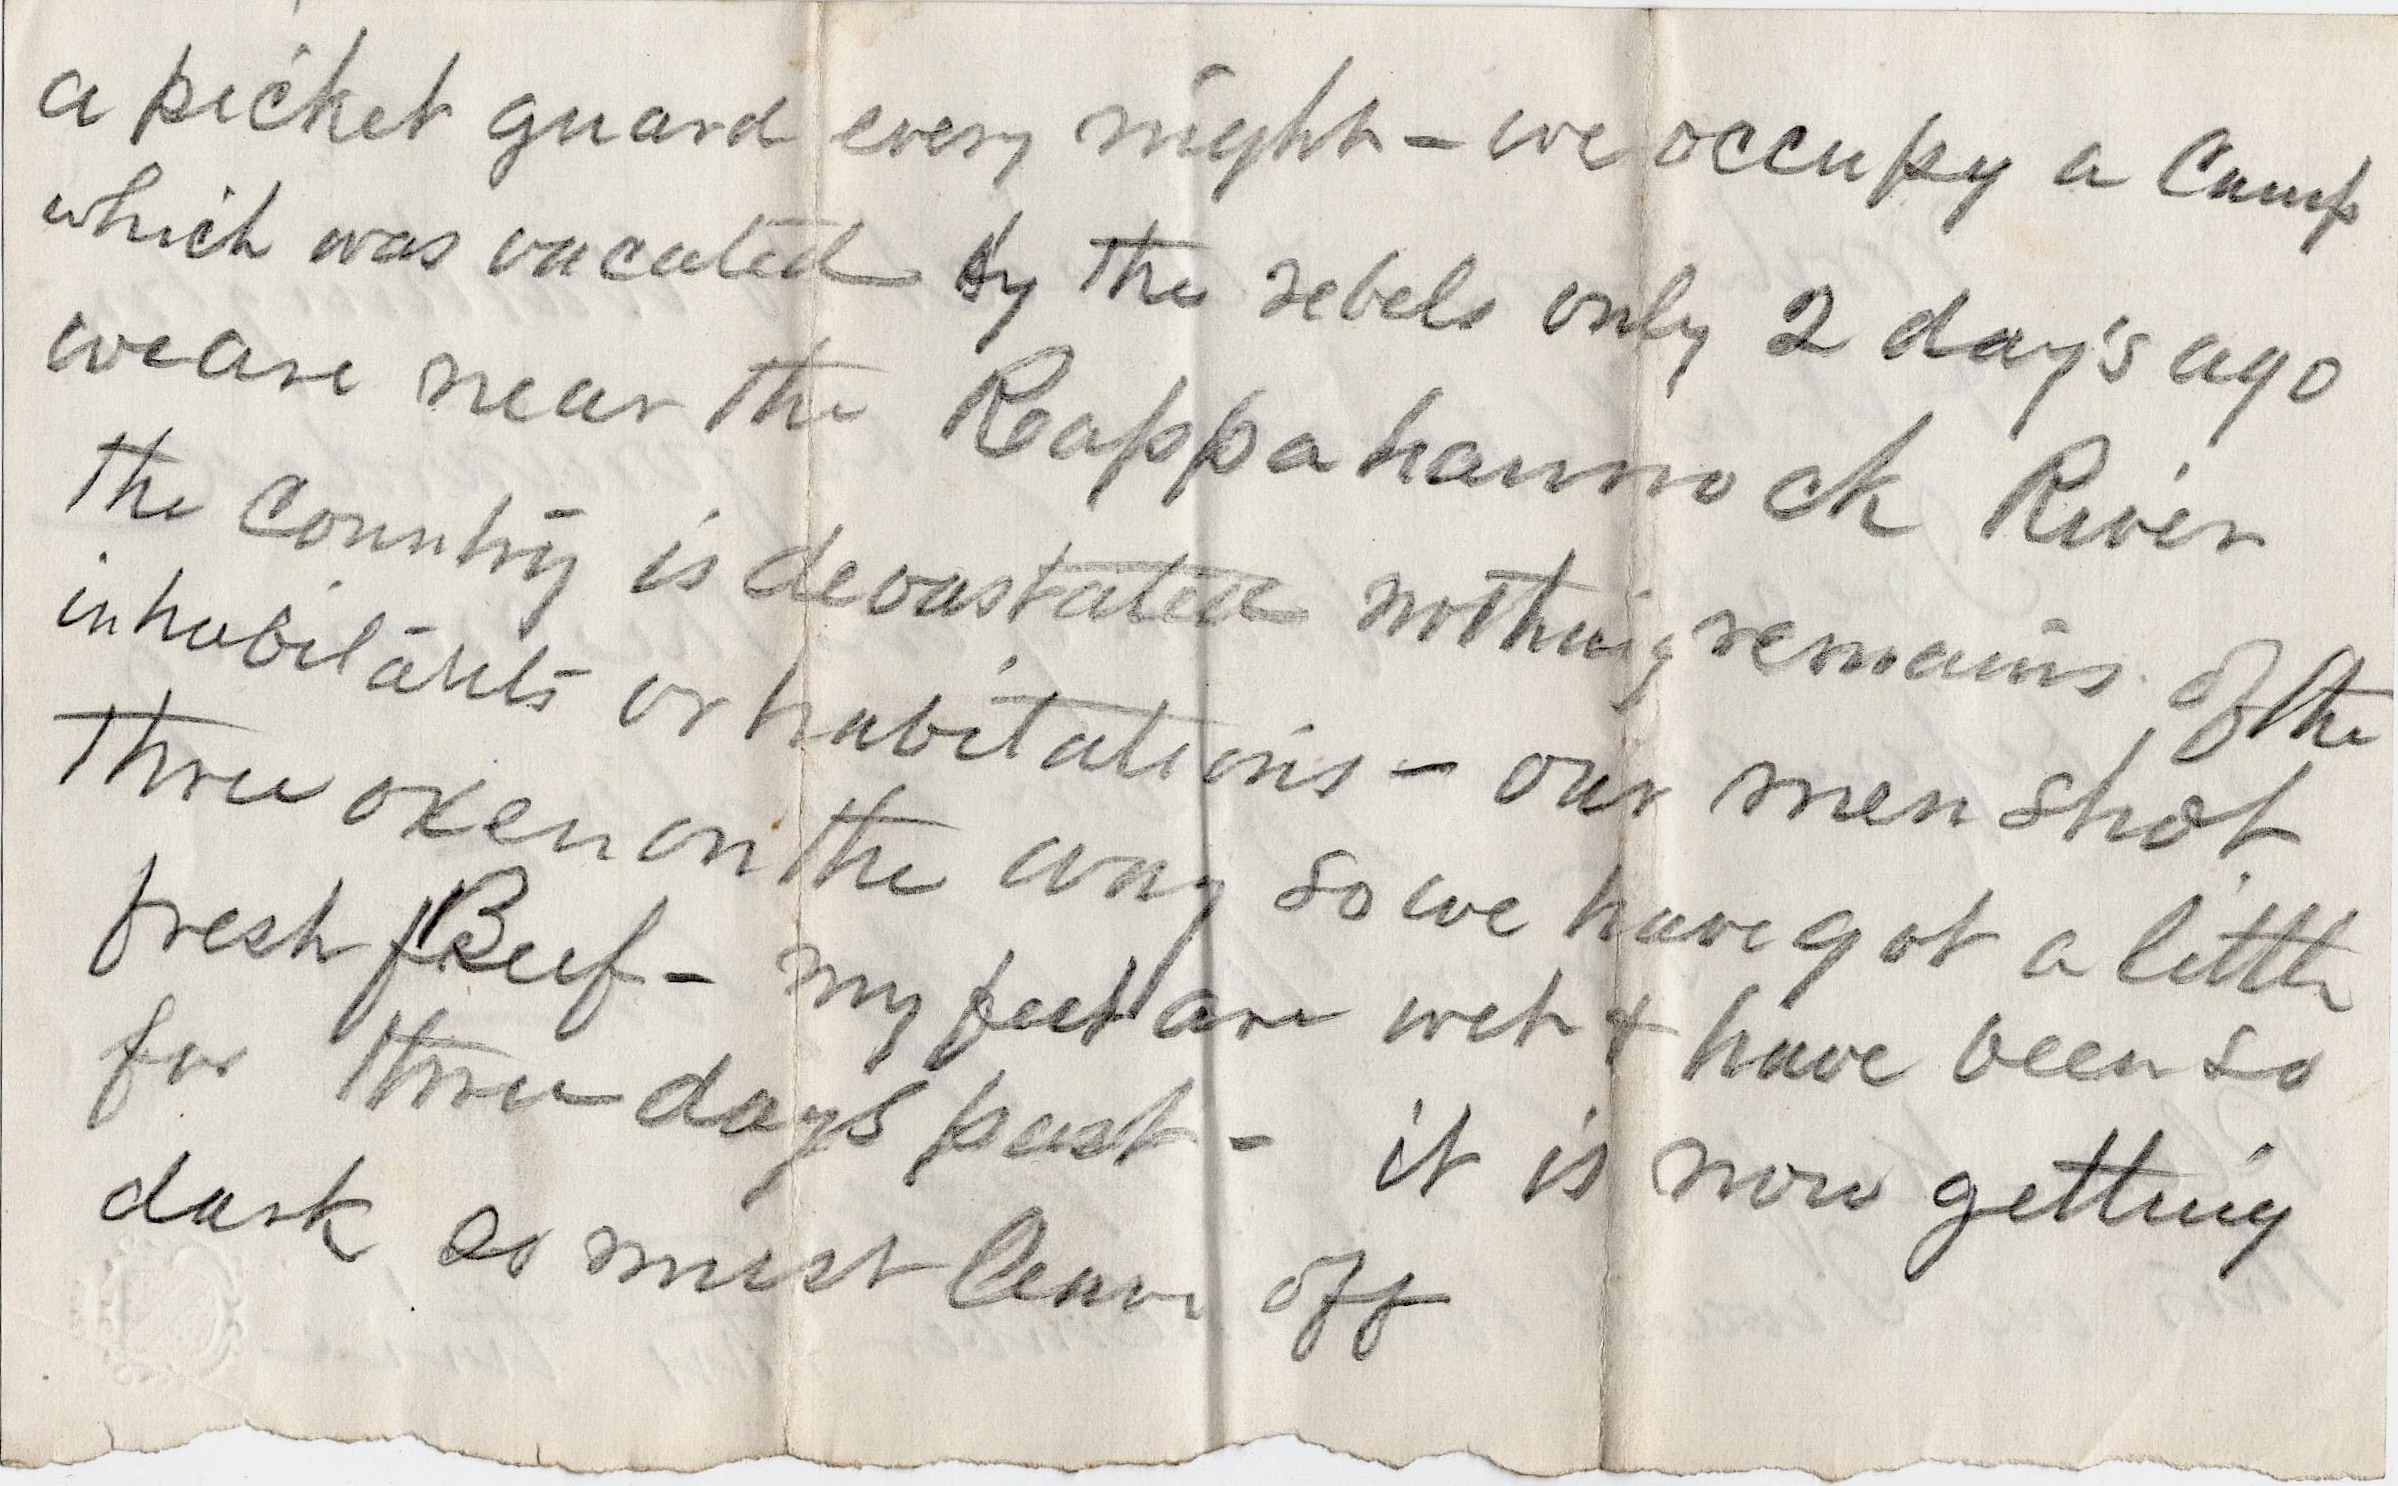 a picket guard every night - we occupy a Camp
which was vacated by the rebels only 2 day's ago
we are near the Rappahannock River
the Country is devastated nothing remains of the
inhabitants or habitations - our men shot
three oxen on the way so we have got a little
fresh Beef - my feet are wet & have been so
for three days past - it is now getting
dark so must leave off